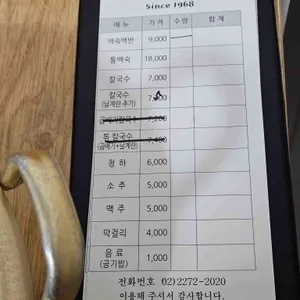 Since 1968
메뉴 가격 수량 합계
백숙백반 9,000
통백숙 18,000
칼국수 7,000
칼국수
(날계란 추가)
곱빼기칼국수 7,200
특 칼국수 7,400
(곱빼기+날계란)
청하 6,000
소주 5,000
맥주 5,000
막걸리 4,000
음료 1,000
(공기밥)
전화번호 02)2272-2020
이용해 주셔서 감사합니다.